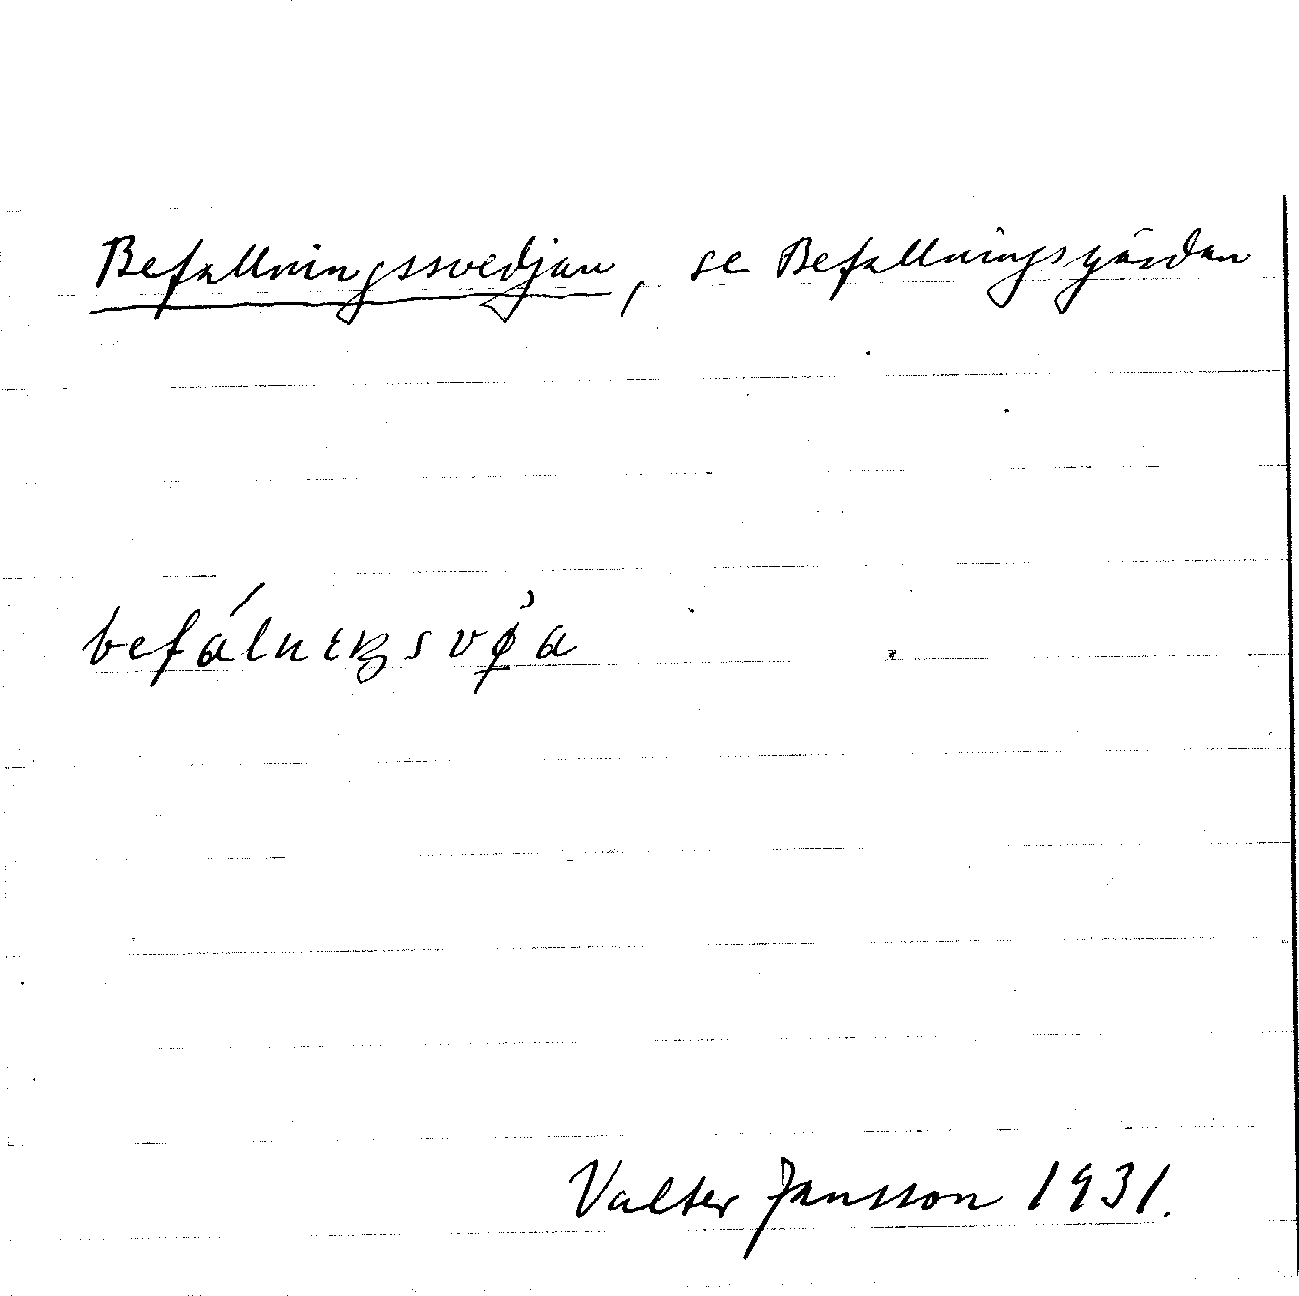 Befallningssvedjan, se Befallningsgärdan
befálnıŋsvø̀a
Valter Jansson 1931.